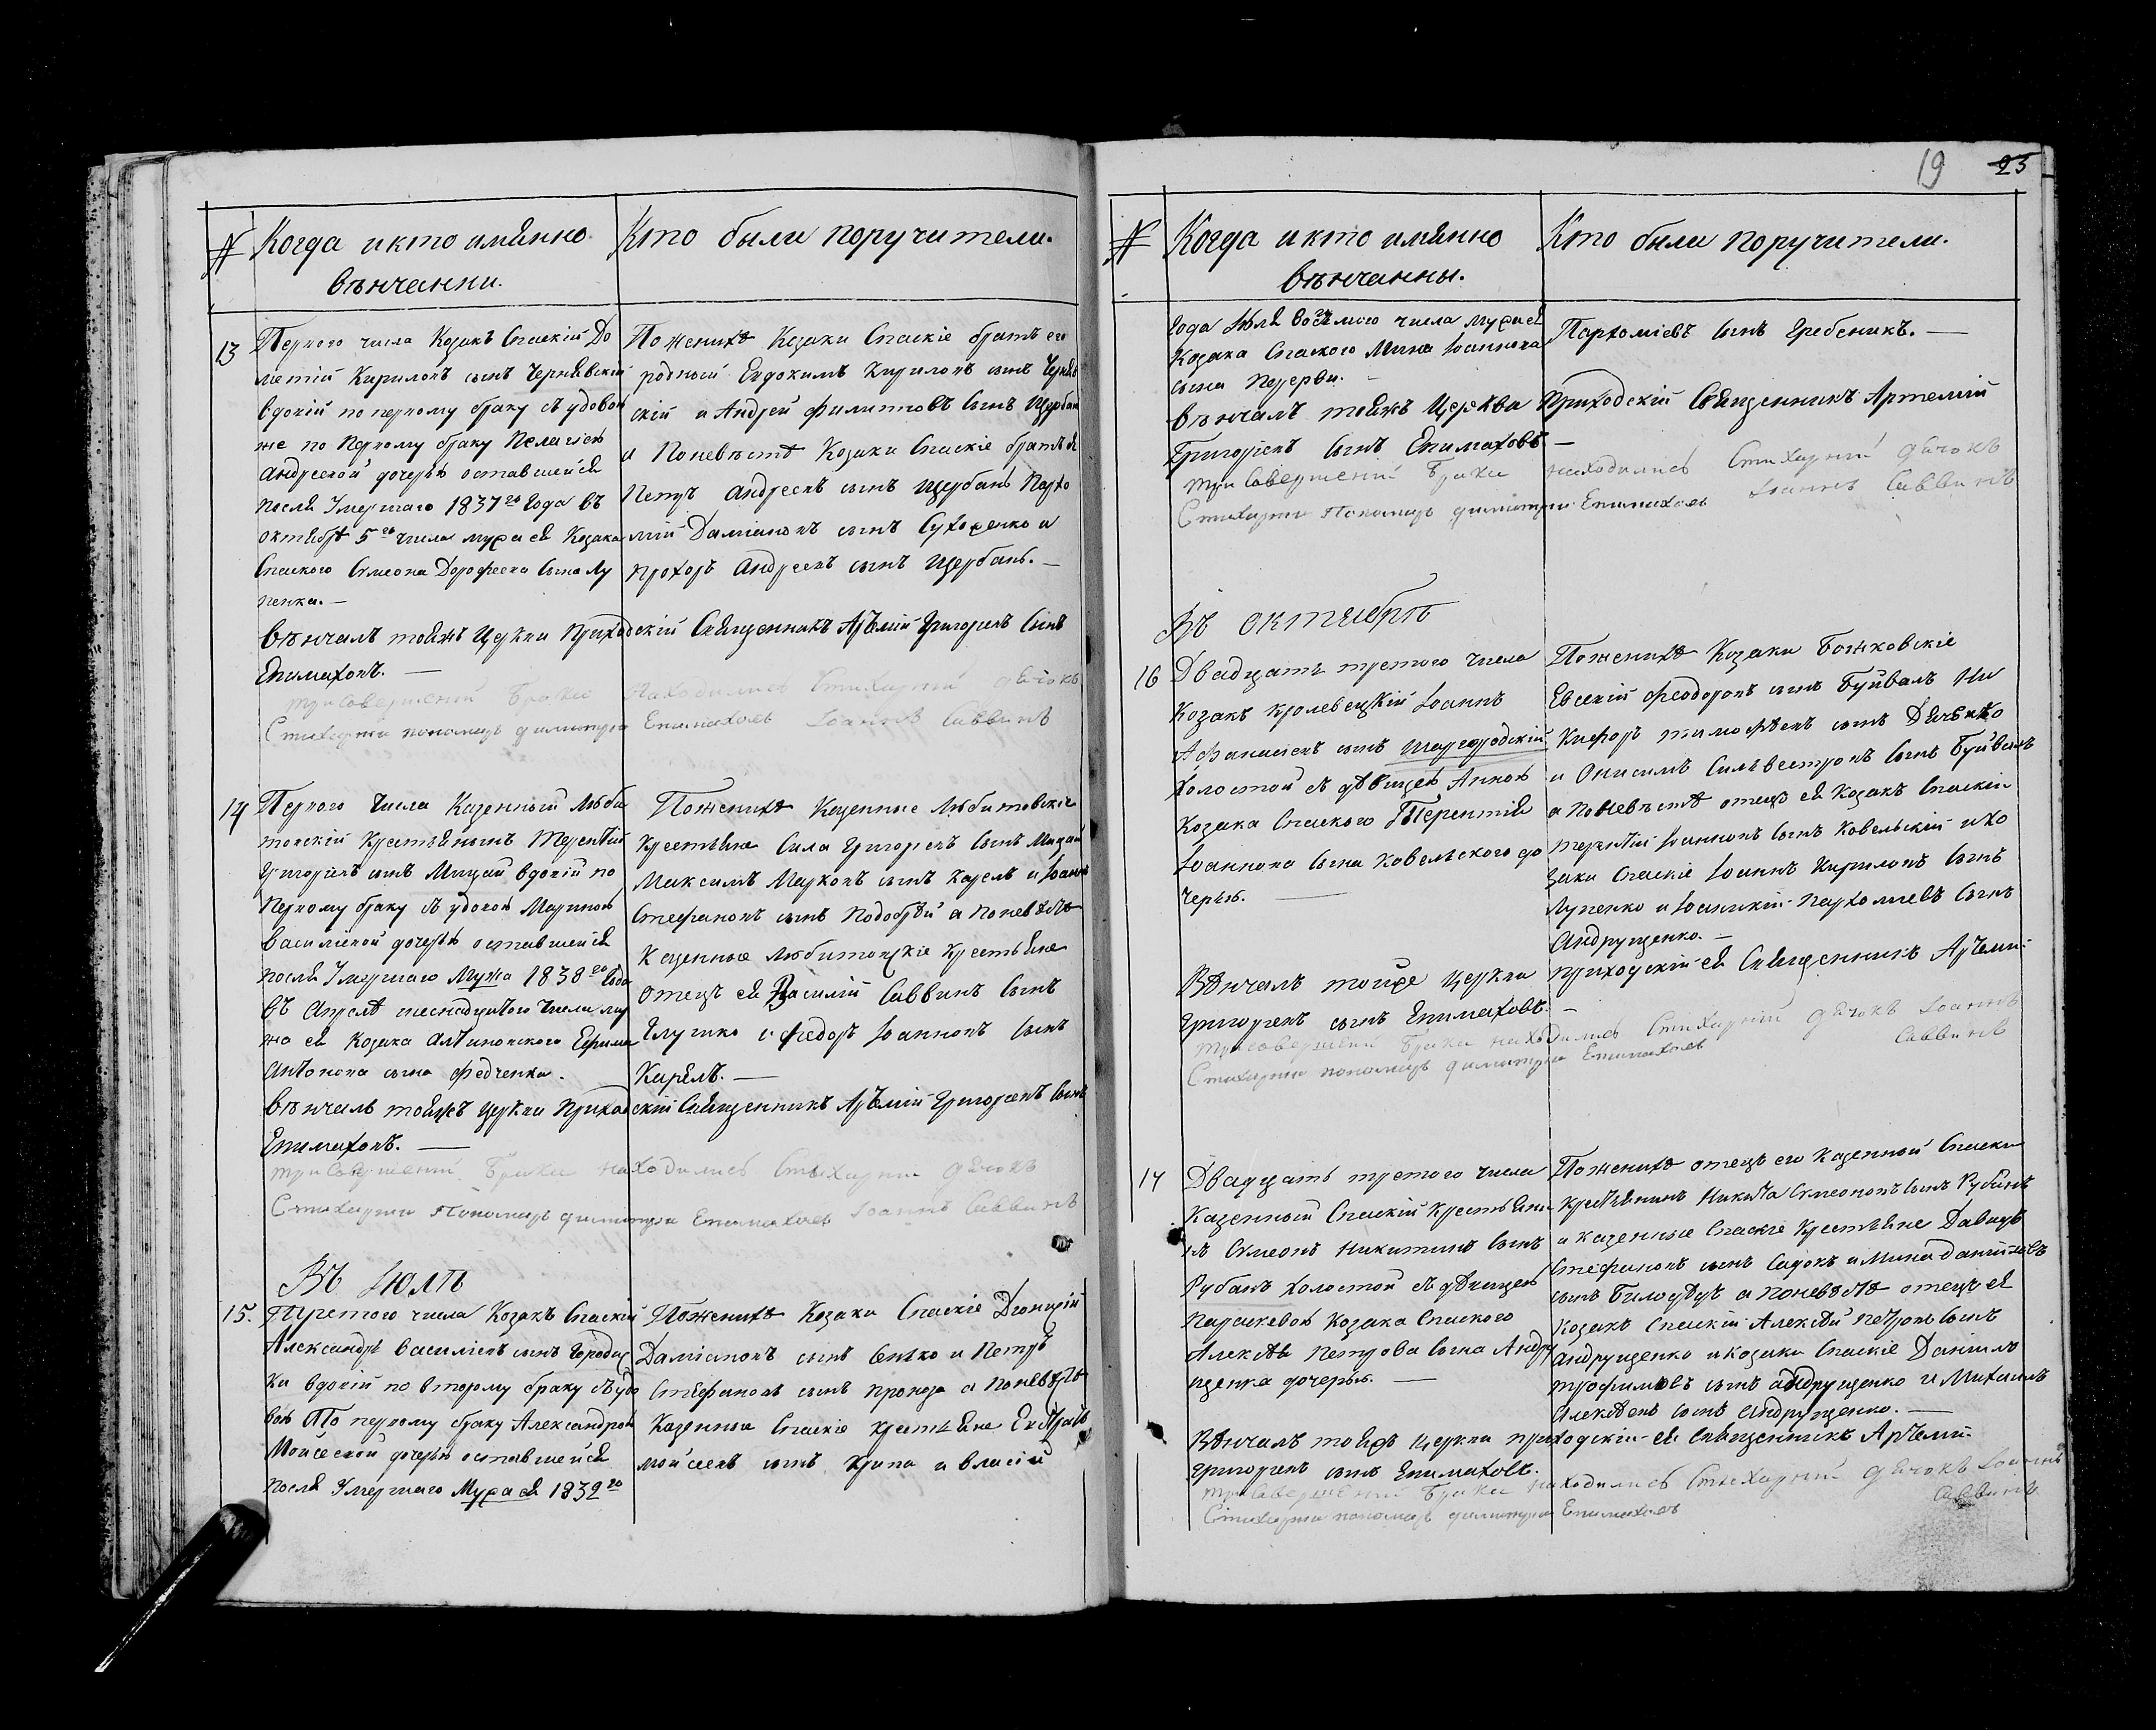 № Когда и кто имянно
вѣнчанни.
Кто были поручители.
13 Перваго числа Козакъ Спаскій До
метій Кириловъ сынъ Чернявскій
вдовій по первому браку съ удовою
же по первому браку Пелагіею
Андреевой дочерью оставшейся
послѣ Умершаго 1837го Года въ
октябрѣ 5го числа мужа ея Козака
Спаского Симеона Дорофеева сына Лу
ценка. —
По женихѣ Козаки Спаскіе братъ его
родный Евдокимъ Кириловъ сынъ Черняв
скій и Андрей Филиповъ сынъ Щербан
и По невѣстѣ Козаки Спаскіе братъ ея
Петръ Андреевъ сынъ Щербань Пархо
мій Даміановъ сынъ и
Прохоръ Андреевъ сынъ Щербань. —
Вѣнчалъ тояжъ Церкви Приходскій Священникъ Артемій Григорьевъ Сынъ
Епимаховъ. —
При Совершеніи Брака Находились Стихарній дячокъ
Стихарни пономарь димитри Епимаховъ Іоаннъ Саввинъ
14 Перваго Числа Казенный Люби
товскій Крестьянинъ Терентій
Григорьевъ сынъ Мицай вдовій по
Первому браку съ удовою Мариною
Василіевой дочерью оставшейся
послѣ Умершаго Мужа 1838го Года
въ Апрелѣ шеснадцятого Числа му
жа ея Козака Алтиновского Ефима
Антонова сына Федченка.
По женихѣ Казенные Любитовскіе
Крестьяне Сила Григорьевъ Сынъ Мицай
Максимъ Марковъ сынъ Карель и Іоаннъ
Стефановъ сынъ Подобѣй а по невѣстѣ
Казенные Любитовскіе Крестьяне
Отецъ ея Василій Саввинъ Сынъ
Глушко и Федоръ Іоанновъ Сынъ
Карель. —
Вѣнчалъ тояжъ Церкви Приходскій Священникъ Артемій Григорьевъ Сынъ
Епимаховъ. —
При Совершеніи Брака Находились Стихарни дячокъ
Стихарни Пономарь димитри Епимаховъ Іоаннъ Саввинъ
Въ Іюлѣ
15. Третого числа Козакъ Спаскій
Александръ Василіевъ сынъ Городис
ки вдовій по второму браку съ удо
вою По первому браку Александрою
Мойсеевой дочерью оставшейся
послѣ Умершаго Мужа ея 1839го
По женихѣ Козаки Спаскіе Діонисій
Даміановъ сынъ и Петръ
Стефановъ сынъ а по невѣстѣ
Казенные Спаскіе Крестьяне
Мойсеевъ сынъ и Власій
19 23
№ Когда и кто имянно
вѣнчанны.
Кто были поручители.
Года Іюля Восмого числа мужа ея
Козака Спаского Мина Іоаннова
сына Перерви. —
Пархоміевъ Сынъ Гребеникъ. —
Вѣнчалъ тояжъ Церкви Приходскій Священникъ Артемій
Григорьевъ Сынъ Епимаховъ —
При Совершеніи Брака находились Стихарній дячокъ
Стихарни Пономарь димитри Епимаховъ Іоаннъ Саввинъ
Въ октябрѣ
16 Двадцать третого числа
Козакъ кролевецкій Іоаннъ
Афанасіевъ сынъ Шаргородскій
Холостой съ дѣвицею Анною
Козака Спаского Терентія
Іоаннова сына Ковельского до
черью. —
По женихѣ Козаки Божковскіе
Евсевій Феодоровъ сынъ Буйвалъ Ни
кифоръ Тимофѣевъ сынъ Дяченко
и Онисимъ Сильвестровъ Сынъ Буйвалъ
а по невѣстѣ отецъ ея Козакъ Спаскій
Терентій Іоанновъ Сынъ Ковельскій и ко
заки Спаскіе Іоаннъ Кириловъ Сынъ
Луценко и Іоаникій Пархоміевъ Сынъ
Андрущенко. —
Вѣнчалъ тойже Церкви приходскій ея Священникъ Артемій
Григорьевъ сынъ Епимаховъ. —
При совершеніи Брака находились Стихарній дячокъ Іоаннъ
Саввинъ
Стихарни пономарь димитри Епимаховъ
17 Двадцать третого числа
Казенный Спаскій Крестьяни
нъ Симеонъ Никитинъ Сынъ
Рубанъ Холостой съ дѣвицею
Параскевою Козака Спаского
Алексѣя Петрова Сына Андру
щенка дочерью. —
По женихѣ отецъ его Казенной Спаски
Крестьянинъ Никита Симеоновъ сынъ Рубанъ
и казенные Спаскіе Крестьяне Давидъ
Стефановъ сынъ Садокъ и Мина Даниловъ
сынъ Билодѣдъ а по невѣстѣ отецъ ея
Козакъ Спаскій Алексѣй Петровъ Сынъ
Андрущенко и козаки Спаскіе Даніилъ
Трофимовъ сынъ Андрущенко и Михаилъ
Алексѣевъ сынъ Андрущенко. —
Вѣнчалъ тояжъ Церкви приходскій ея Священникъ Артемій
Григорьевъ сынъ Епимаховъ.
При Совершеніи Брака находились Стихарный дячокъ Іоаннъ
Саввинъ
Стихарни пономарь димитри Епимаховъ